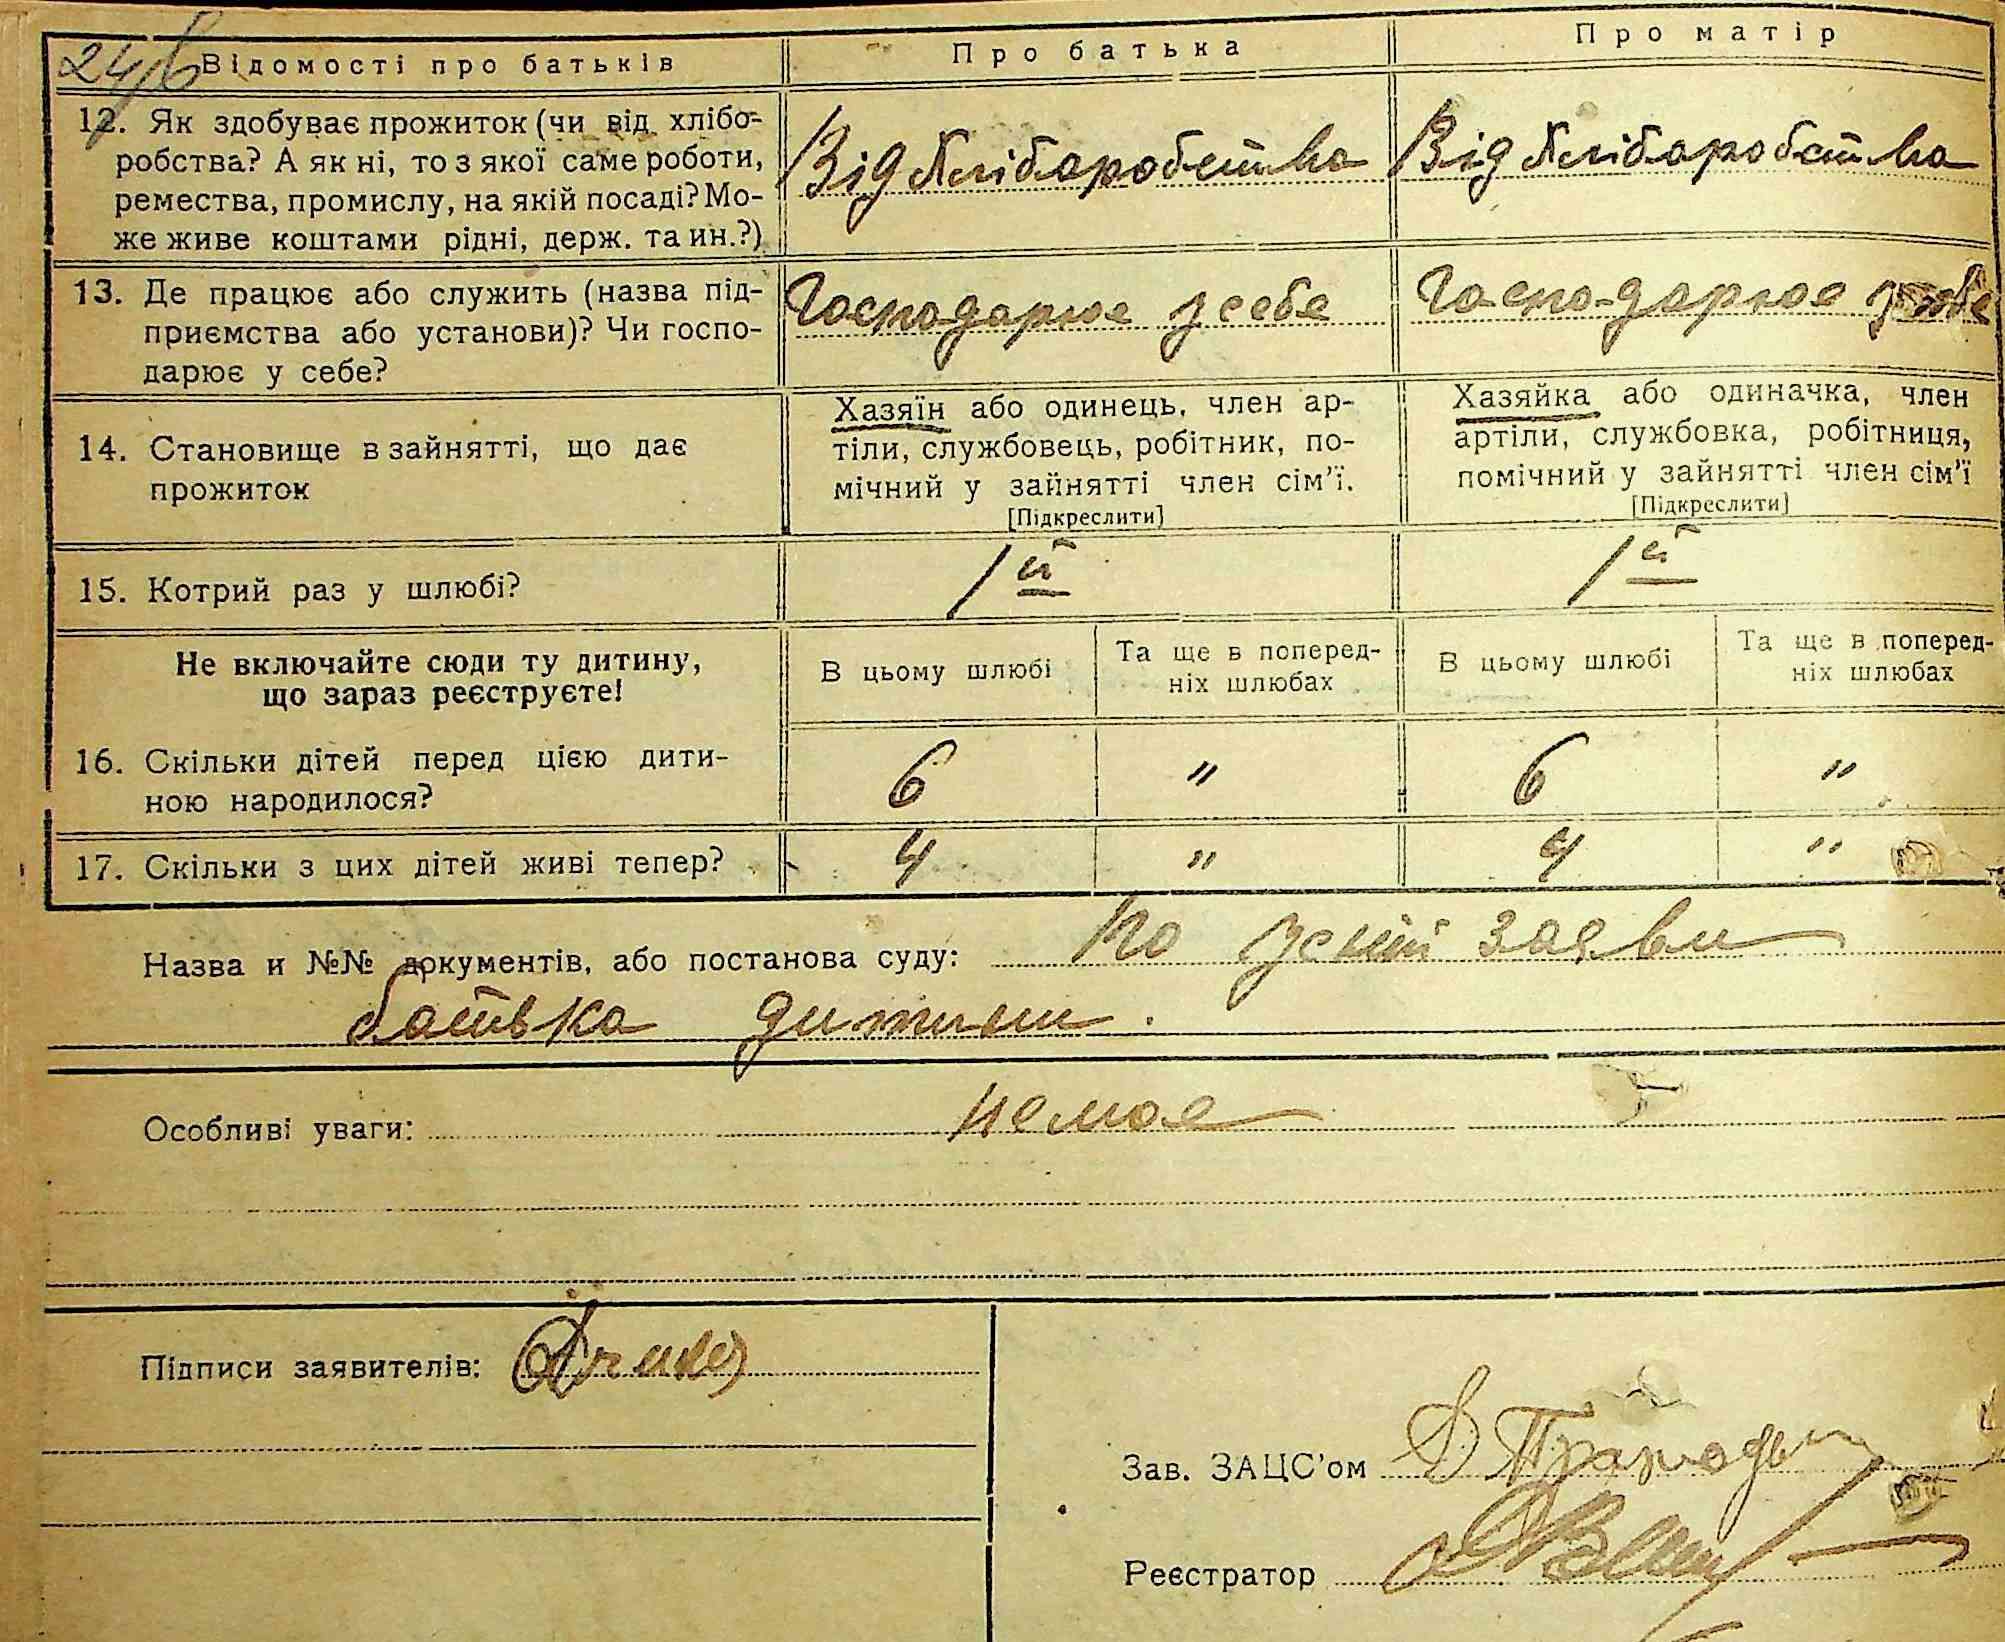 24
Відомості про батьків
Про батька
Про матір
12. Як здобуває прожиток (чи від хлібо-
робства? А як ні, то з якої саме роботи,
ремества, промислу, на якій посаді? Мо-
же живе коштами рідні, держ. та ин.?)
Від Хлібаробства
Від Хлібаробства
13. Де працює або служить (назва під-
приємства або установи)? Чи госпо-
дарює у себе?
Господарює у себе
Господарює у себе
14. Становище в зайнятті, що дає
прожиток
Хазяїн або одинець, член ар-
тіли, службовець, робітник, по-
мічний у зайнятті член сім'ї.
[Підкреслити]
Хазяйка або одиначка, член
артіли, службовка, робітниця,
помічний у зайнятті член сім'ї
[Підкреслити]
15. Котрий раз у шлюбі?
1й
1й
Не включайте сюди ту дитину,
що зараз реєструєте!
В цьому шлюбі
Та ще в поперед-
ніх шлюбах
В цьому шлюбі
Та ще в поперед-
ніх шлюбах
16. Скільки дітей перед цією дити-
ною народилося?
6 " 6 "
17. Скільки з цих дітей живі тепер?
4 " 4 "
Назва и №№ документів, або постанова суду: по усній заяви
батька дитини.
Особливі уваги: немає
Підписи заявителів:
Зав. ЗАЦС'ом
Реєстратор